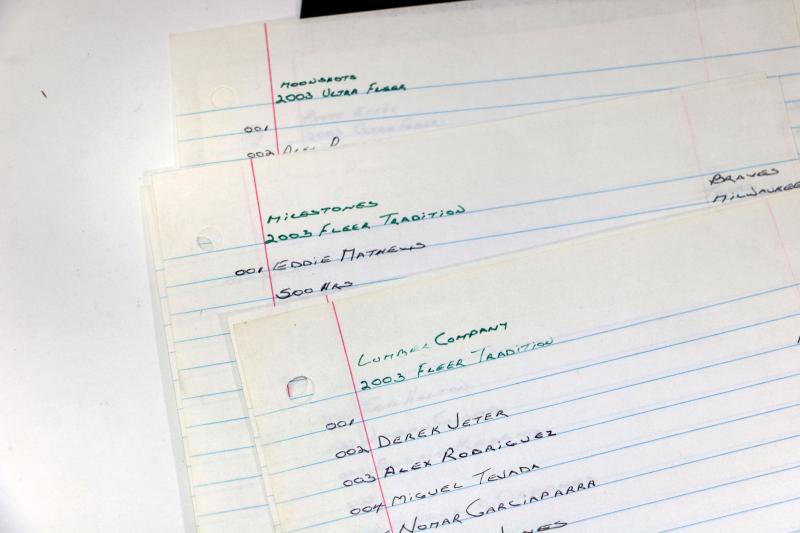 MOONSHOTS
2003 ULTRA FLEER
001
002
MILESTONES
2003 FLEER TRADITION
001 EDDIE MATHEWS BRAVES
500 HRS MILWAUKEE
LUMBER COMPANY
2003 FLEER TRADITION
001
002 DEREK JETER
003 ALEX RODRIGUEZ
004 MIGUEL TEJADA
NOMAR GARCIAPARRA